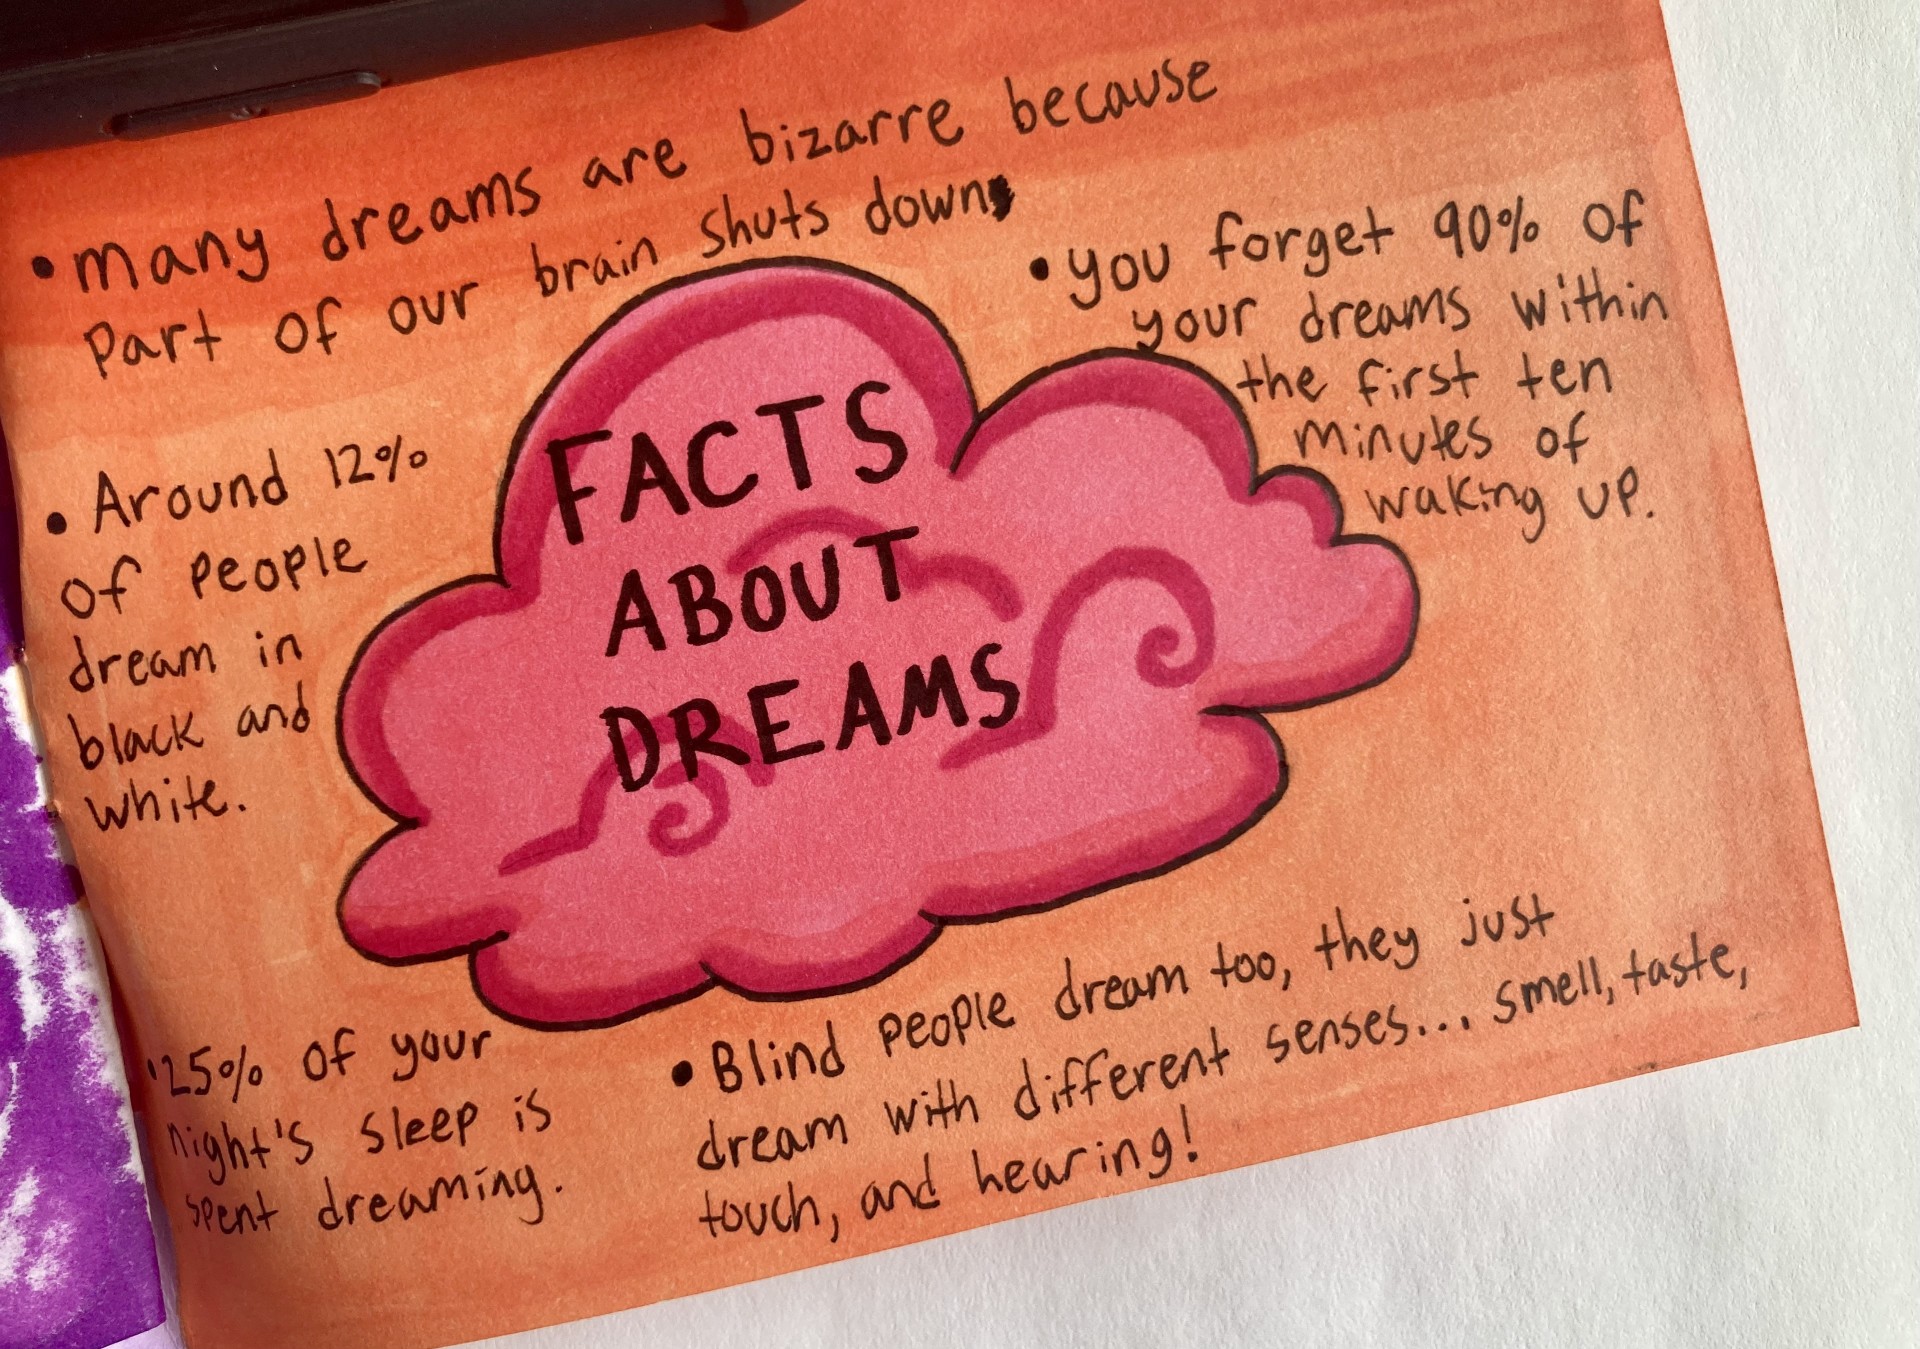 • Many dreams are bizarre because
part of our brain shuts down
• You forget 90% of
your dreams within
the first ten
minutes of
waking up.
FACTS
ABOUT
DREAMS
• Around 12%
of people
dream in
black and
white.
• 25% of your
night's sleep is
spent dreaming.
• Blind people dream too, they just
dream with different senses... smell, taste,
touch, and hearing!